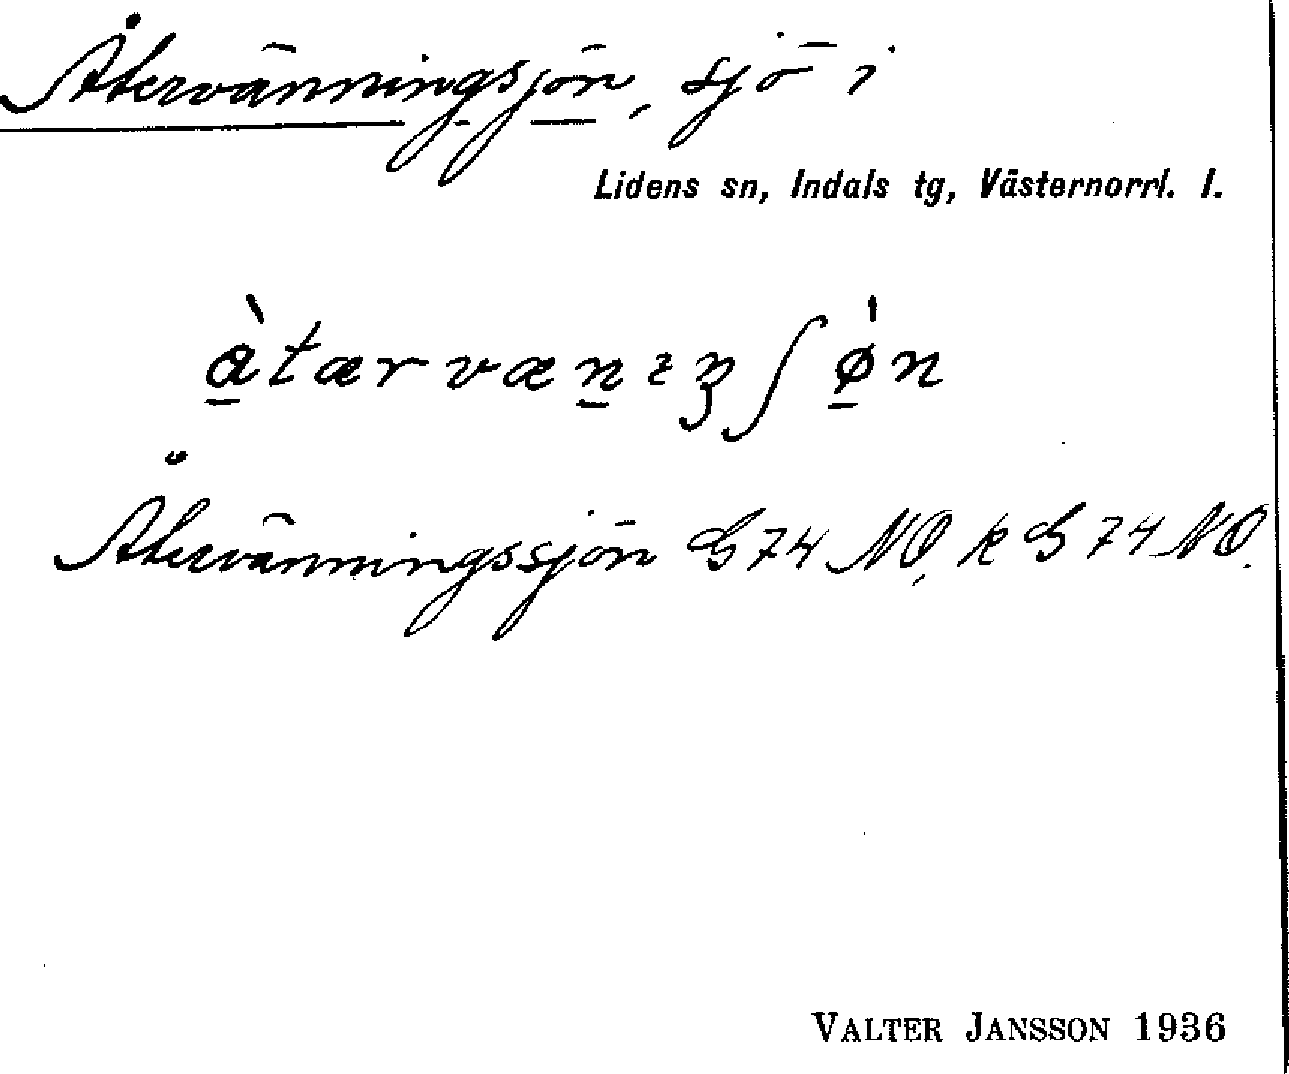 Återvänningsjön, sjö i
Lidens sn, Indals tg, Västernorrl. l.
Återvänningssjön G 74 NO, k G 74 NO.
VALTER JANSSON 1936